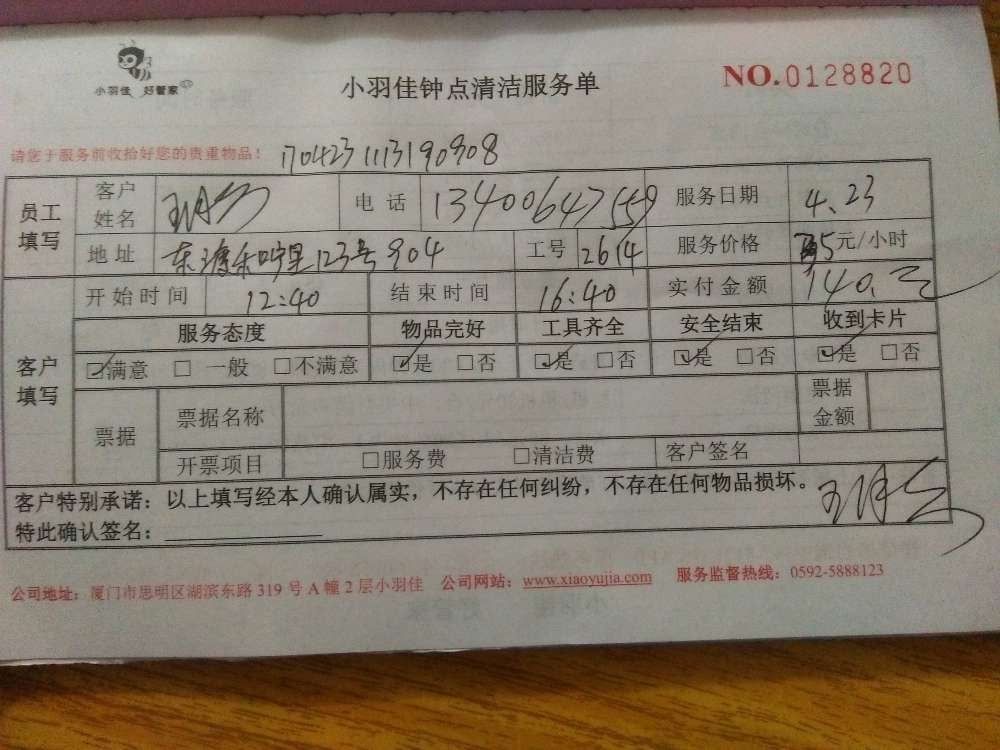 小羽佳 好管家
小羽佳钟点清洁服务单
NO.0128820
请您于服务前收拾好您的贵重物品!
1704231113190908
员工填写 客户姓名 电话 13400647559 服务日期 4.23
地址 东渡和宁里123号904 工号 2614 服务价格 35元/小时
客户填写 开始时间 12:40 结束时间 16:40 实付金额 140.
服务态度 物品完好 工具齐全 安全结束 收到卡片
☑满意 □一般 □不满意 ☑是 □否 ☑是 □否 ☑是 □否 ☑是 □否
票据 票据名称 票据金额
开票项目 □服务费 □清洁费 客户签名
客户特别承诺:以上填写经本人确认属实,不存在任何纠纷,不存在任何物品损坏。
特此确认签名:
公司地址:厦门市思明区湖滨东路 319 号 A 幢 2 层小羽佳 公司网站:www.xiaoyujia.com 服务监督热线:0592-5888123